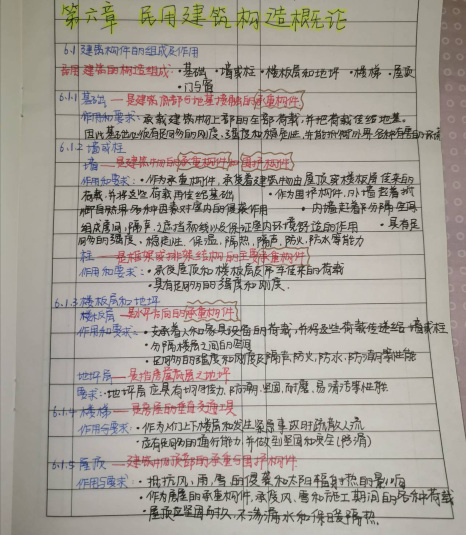 第六章 民用建筑构造概论
6.1 建筑构件的组成及作用
民用建筑的构造组成：·基础 ·墙或柱 ·楼板层和地坪 ·楼梯 ·屋顶
·门与窗
6.1.1 基础 — 是建筑底部与地基接触的承重构件
作用和要求：·承载建筑物上部的全部荷载，并把荷载传给地基。
因此基础必须有足够的刚度、强度和稳定性，并能抵御外界各种有害的
6.1.2 墙或柱
墙 — 是建筑物的承重构件和围护构件
作用和要求：·作为承重构件，承受着建筑物由屋顶或楼板层传来的
荷载，并将这些荷载再传给基础 ·作为围护构件，外墙起着抵
御自然界各种因素对室内的侵袭作用 ·内墙起着分隔空间
组成房间，隔声，遮挡视线以及保证室内环境舒适的作用 ·具有足
够的强度、稳定性，保温，隔热，隔声，防火，防水等能力
柱 — 是框架或排架结构的主要承重构件
作用和要求：·承受屋顶和楼板层及吊车传来的荷载
·具有足够的强度和刚度。
6.1.3 楼板层和地坪
楼板层 — 水平方向的承重构件
作用和要求：·支承着人和家具设备的荷载，并将这些荷载传递给墙或柱
·分隔楼层之间的空间
·足够的强度和刚度及隔声，防火，防水，防潮等性能
地坪层 — 是指房屋底层之地坪
要求：·地坪层应具有均匀传力，防潮，坚固，耐磨，易清洁等性能
6.1.4 楼梯 — 是房屋的垂直交通工具
作用与要求：·作为人们上下楼层和发生紧急事故时疏散人流
·应有足够的通行能力，并做到坚固和安全（防滑）
6.1.5 屋顶 — 建筑物顶部的承重与围护构件
作用与要求：·抵抗风，雨，雪的侵袭和太阳辐射热的影响
·作为房屋的承重构件，承受风、雪和施工期间的各种荷载
·屋顶应坚固耐久、不渗漏水和保暖隔热。